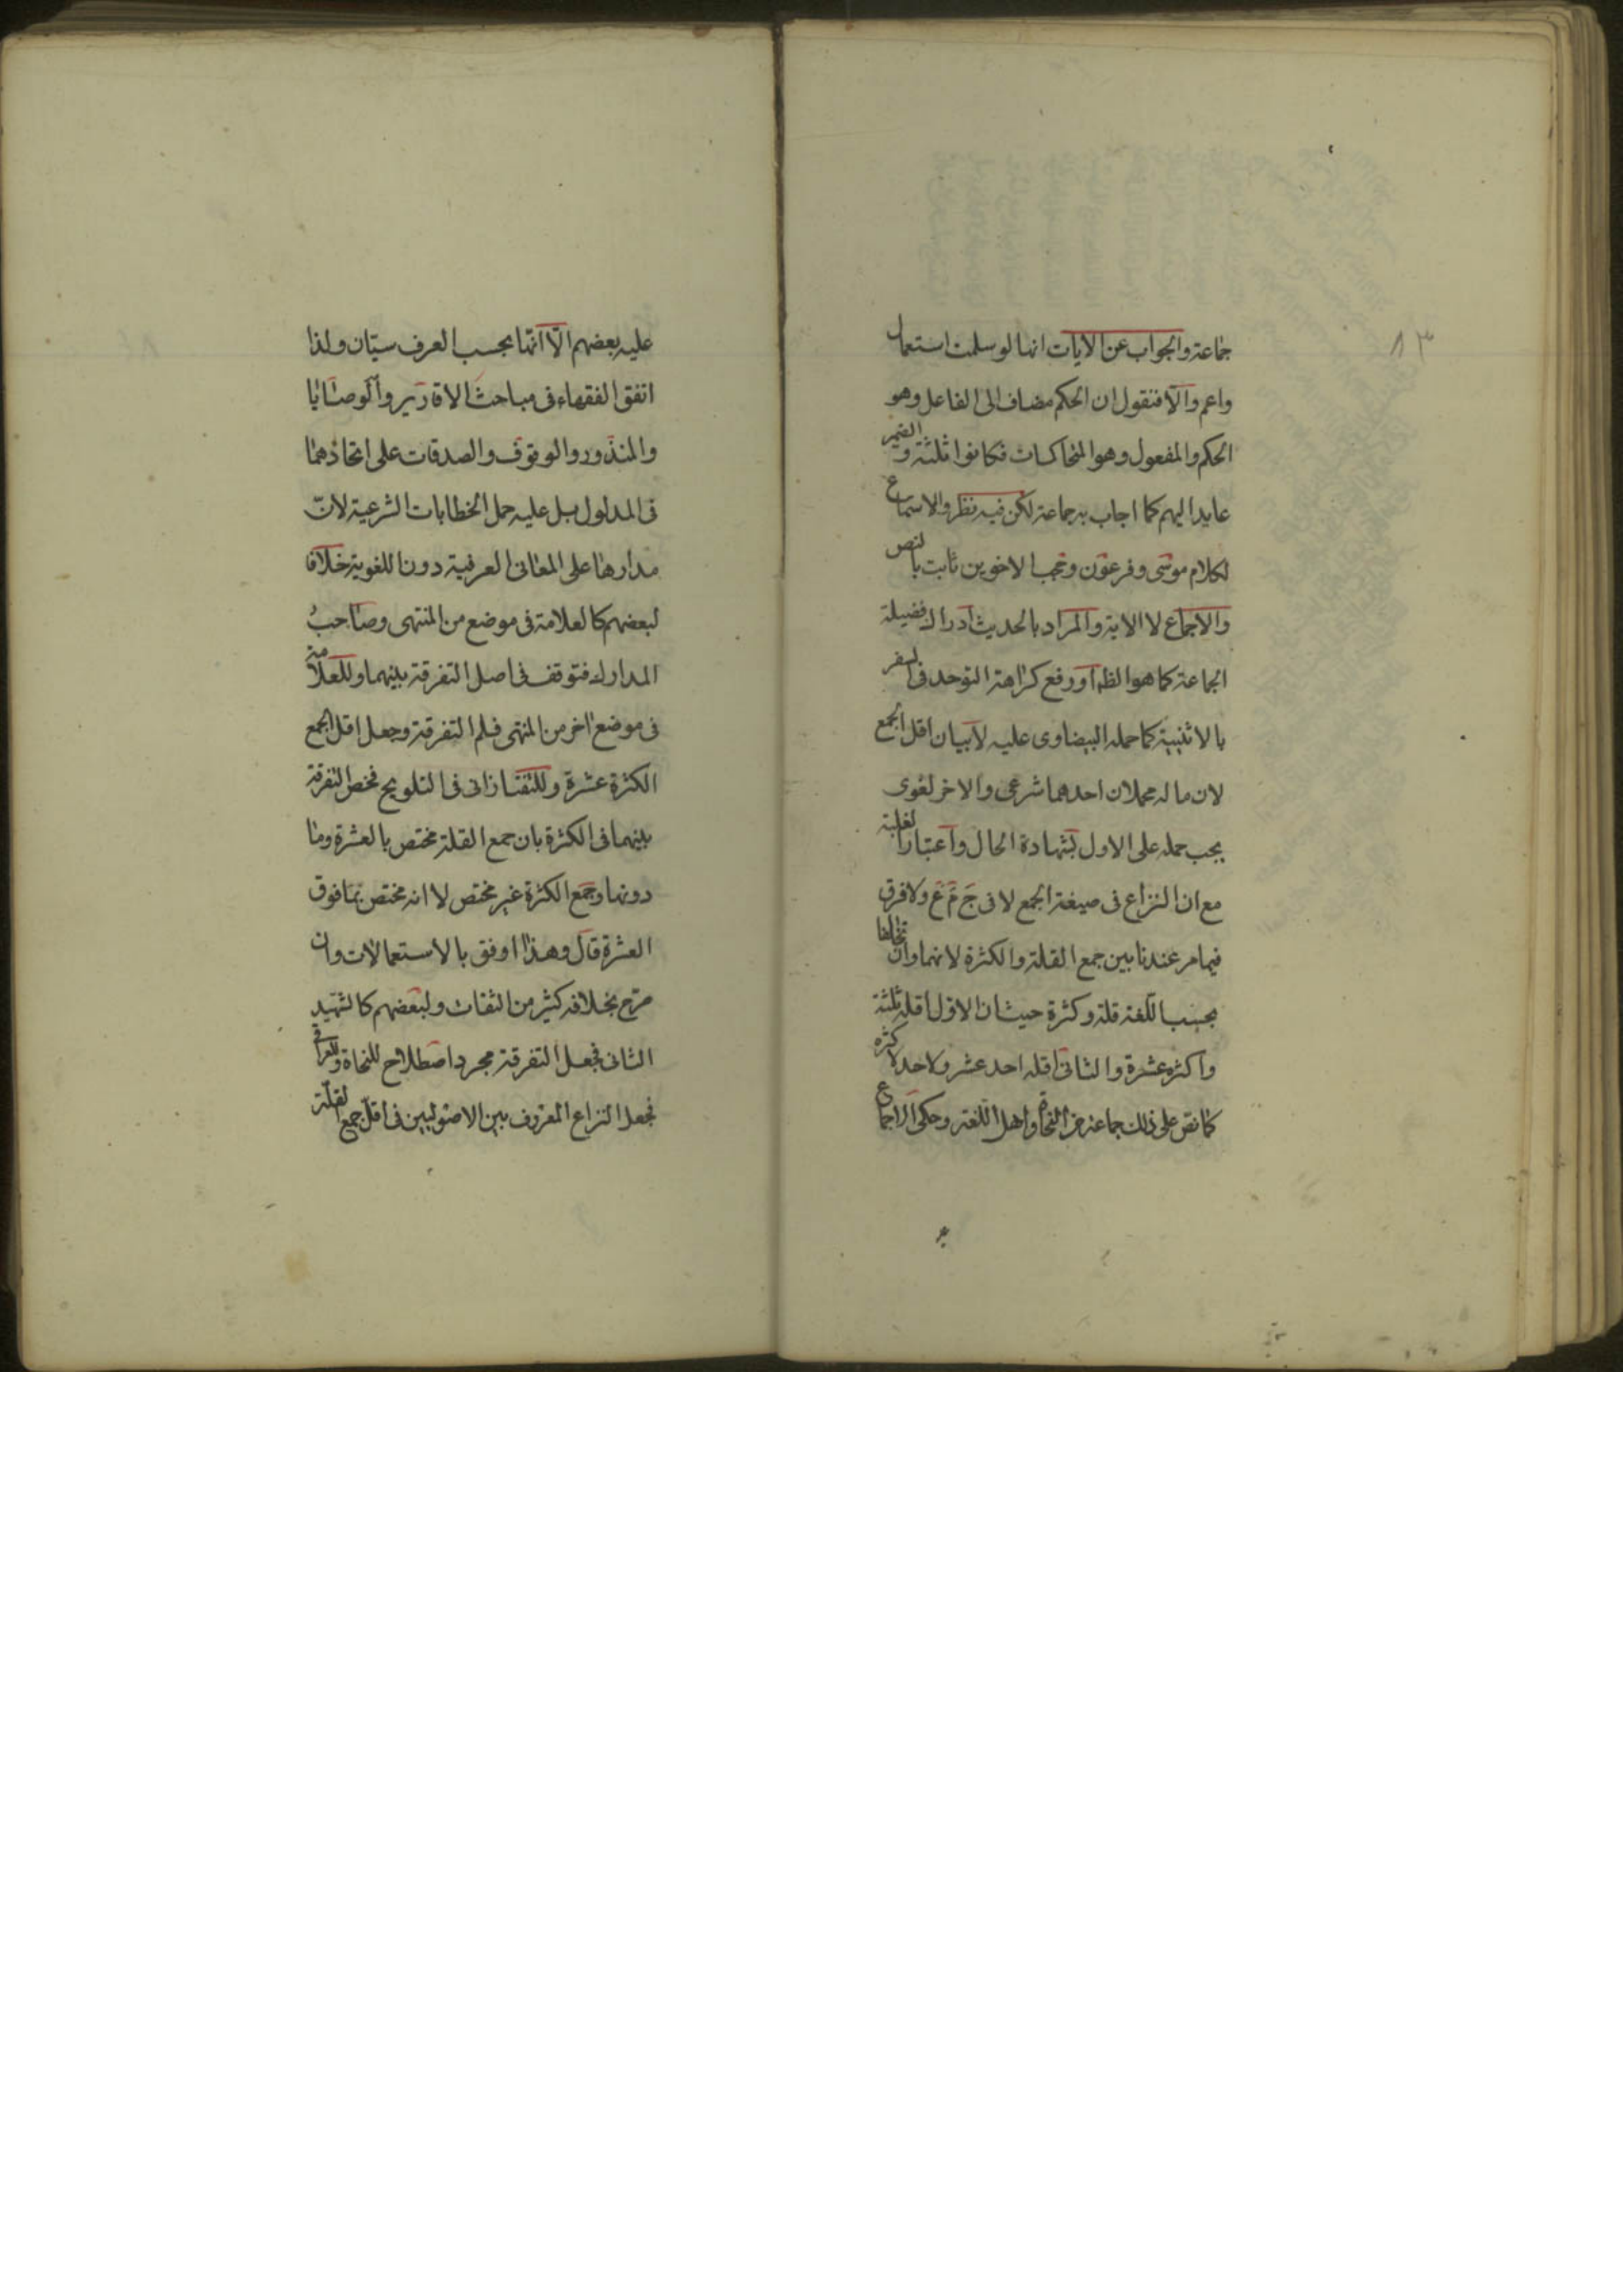 ٨٣
جماعة والجواب عن الايات انها لو سلمت استعمال
واعم والا فنقول ان الحكم مضاف الى الفاعل وهو
الحكم والمفعول وهو المتحاكمان فكانوا ثلثة والضمير
عايد اليهم كما اجاب به جماعة لكن فيه نظر والاستماع
لكلام موسى وفرعون وحجب الاخوين ثابت بالنص
والاجماع لا الاية والمراد بالحديث ادراك فضيلة
الجماعة كما هو الظ او رفع كراهة التوحد فى السفر
بالاثنينية كما حمله البيضاوى عليه لا بيان اقل الجمع
لان ما له محملان احدهما شرعى والاخر لغوى
يجب حمله على الاول بشهادة الحال واعتبار الغلبة
مع ان النزاع فى صيغة الجمع لا فى ج م ع ولا فرق
فيما مر عندنا بين جمع القلة والكثرة لانهما وان تخالفا
بحسب اللغة قلة وكثرة حيث ان الاول اقله ثلثة
واكثره عشرة والثانى اقله احد عشر ولا حد لاكثره
كما نص على ذلك جماعة من النحاة واهل اللغة وحكى الاجماع
عليه بعضهم الّا انّهما بحسب العرف سيّان ولذا
اتفق الفقهاء فى مباحث الاقارير والوصايا
والمنذور والوقوف والصدقات على اتحادهما
فى المدلول بل عليه حمل الخطابات الشرعية لان
مدارها على المعانى العرفية دون اللغوية خلافا
لبعضهم كالعلامة فى موضع من المنتهى وصاحب
المدارك فتوقف فى اصل التفرقة بينهما وللعلامة
فى موضع اخر من المنتهى فسلم التفرقة وجعل اقل الجمع
الكثرة عشرة وللتفتازانى فى التلويح فخص التفرقة
بينهما فى الكثرة بان جمع القلة مختص بالعشرة وما
دونها وجمع الكثرة غير مختص لا انه مختص بما فوق
العشرة قال وهذا اوفق بالاستعمالات وان
صرح بخلافه كثير من الثقات ولبعضهم كالشهيد
الثانى فجعل التفرقة مجرد اصطلاح للنحاة وللعراقى
فجعل النزاع المعروف بين الاصوليين فى اقل جمع القلة